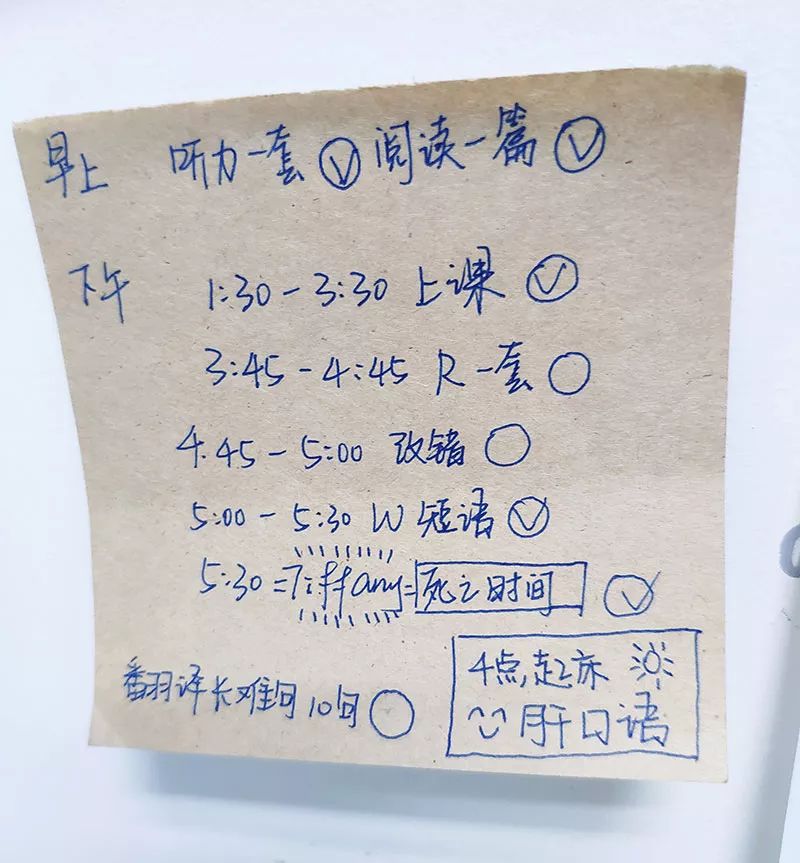 早上 听力一套 阅读一篇
下午 1:30-3:30 上课
3:45-4:45 R 一套
4.45-5:00 改错
5:00-5:30 W 短语
5:30=Tiffany=死亡时间
翻译长难句10句
4点起床
肝口语